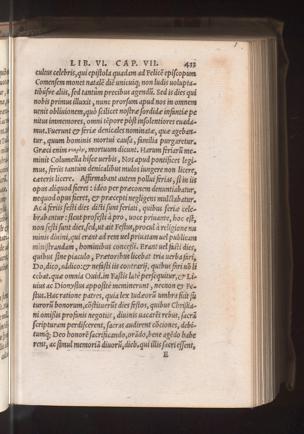 LIB. VI. CAP. VII. 433
cultus celebris, qui epistola quadam ad Felicē episcopum
Comensem monet natalē diē unicuiq; non ludis uoluptа-
tibusve aliis, sed tantum precibus agendū. Sed is dies qui
nobis primus illuxit, nunc prorsum apud nos in omnem
venit obliuionem, quò scilicet nostræ sordidæ infantiæ pe
nitus immemores, omni tēpore pōst insolentiores euada-
mus. Fuerunt & feriæ denicales nominatæ, quæ ageban-
tur, quum hominis mortui causa, familia purgaretur.
Græci enim νεκυν, mortuum dicunt. Harum feriarū me-
minit Columella hisce uerbis, Nos apud pontifices legi-
mus, feriis tantum denicalibus mulos iungere non licere,
cæteris licere. Affirmabant autem pollui ferias, si in iis
opus aliquod fieret: ideo per præconem denuntiabatur,
nequod opus fieret, & præcepti negligens mulctabatur.
Ac à feriis festi dies dicti sunt feriati, quibus feriæ cele-
brabantur: sicut profesti à pro, uoce priuante, hoc est,
non festi sunt dies, sed, ut ait Festus, procul à religione nu
minis diuini, qui erant ad rem uel priuatam uel publicam
ministrandam, hominibus concessi. Erant uel fasti dies,
quibus sine piaculo, Prætoribus licebat tria uerba fari,
Do, dico, addico: & nefasti iis contrarij, quibus fari nō li
cebat. quæ omnia Ouid. in Fastis latè persequitur, & Li
uius ac Dionysius appositè meminerunt, necnon & Fe-
stus. Hac ratione patres, quia lex Iudæorū umbra fuit fu
turorū bonorum, cōstituerunt dies festos, quibus Christia-
ni omissis profanis negotiis, diuinis uacarēt rebus, sacrā
scripturam perdiscerent, sacras audirent cōciones, debi-
tumq; Deo honorē sacrificando, orādo, bene agēdo habe
rent, ac simul memoriā diuorū, dieb. qui illis sacri essent,
E